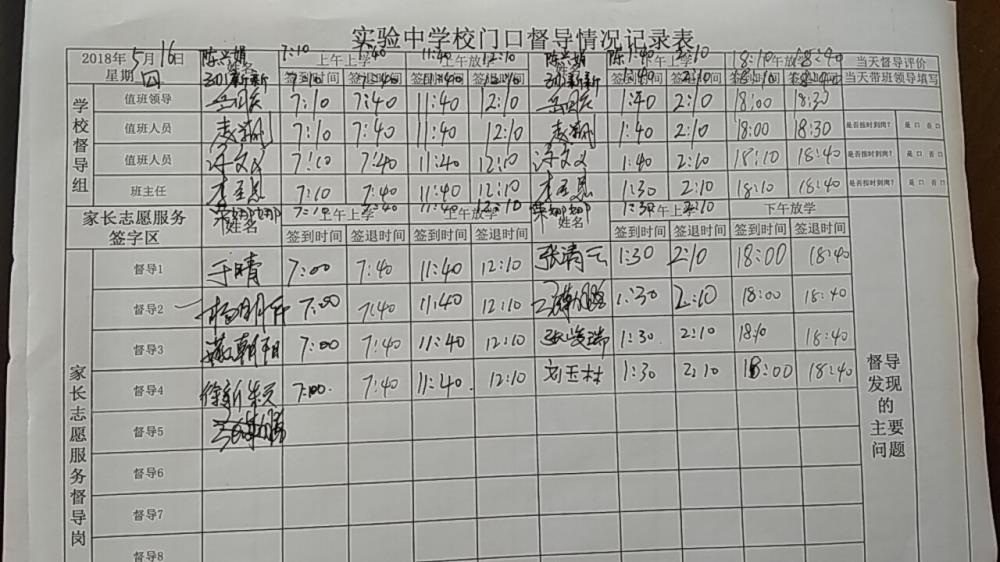 实验中学校门口督导情况记录表
2018年5月16日 陈兴娟 7:10 上午上学 7:40 11:40 上午放学 12:10 陈兴娟 1:40 下午上学 2:10 18:10 下午放学 18:40 当天督导评价
星期四 姓名 签到时间 签退时间 签到时间 签退时间 姓名 签到时间 签退时间 签到时间 签退时间 当天带班领导填写
学校督导组
值班领导 7:10 7:40 11:40 12:10 1:40 2:10 18:00 18:30
值班人员 7:10 7:40 11:40 12:10 1:40 2:10 18:00 18:30 是否按时到岗? 是 口 否 口
值班人员 7:10 7:40 11:40 12:10 1:40 2:10 18:10 18:40 是否按时到岗? 是 口 否 口
班主任 7:10 7:40 11:40 12:10 1:30 2:10 18:10 18:40 是否按时到岗? 是 口 否 口
家长志愿服务 7:10 上午上学 7:40 11:40 上午放学 12:10 1:30 下午上学 2:10 下午放学
签字区 姓名 签到时间 签退时间 签到时间 签退时间 姓名 签到时间 签退时间 签到时间 签退时间
家长志愿服务督导岗
督导1 于晴 7:00 7:40 11:40 12:10 张清云 1:30 2:10 18:00 18:40
督导2 7:00 7:40 11:40 12:10 1:30 2:10 18:00 18:40
督导3 7:00 7:40 11:40 12:10 1:30 2:10 18:10 18:40
督导4 7:00 7:40 11:40 12:10 刘玉村 1:30 2:10 18:00 18:40
督导5
督导6
督导7
督导8
督导
发现
的
主要
问题